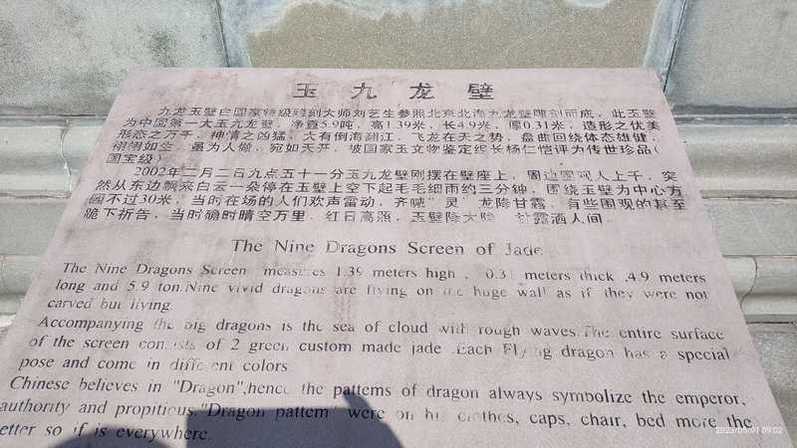 玉九龙壁
九龙玉壁由国家特级雕刻大师刘艺生参照北京北海九龙壁雕刻而成,此玉壁
为中国第一大玉九龙壁,净重5.9吨,高1.39米,长4.9米,厚0.31米,造形之优美
形态之万千,神情之凶猛,大有倒海翻江,飞龙在天之势,盘曲回绕体态雄健,
栩栩如生,虽为人做,宛如天开,被国家玉文物鉴定组长杨仁恺评为传世珍品(
国宝级)
2002年二月二日九点五十一分玉九龙壁刚摆在壁座上,周边围观人上千,突
然从东边飘来白云一朵停在玉壁上空下起毛毛细雨约三分钟,围绕玉壁为中心方
圆不过30米,当时在场的人们欢声雷动,齐喊"灵",龙降甘露,有些围观的甚至
跪下祈告,当时确时晴空万里,红日高照,玉壁除大险,甘露洒人间。
The Nine Dragons Screen of Jade
The Nine Dragons Screen measures 1.39 meters high , 0.31 meters thick ,4.9 meters
long and 5.9 ton.Nine vivid dragons are flying on the huge wall as if they were not
carved but living.
Accompanying the big dragons is the sea of cloud with rough waves.The entire surface
of the screen consists of 2 green custom made jade .Each Flying dragon has a special
pose and come in different colors
Chinese believes in "Dragon",hence the patterns of dragon always symbolize the emperor,
authority and propitious."Dragon pattern" were on his clothes, caps, chair, bed more the
etter so if is everywhere.
2023/05/01 09:02